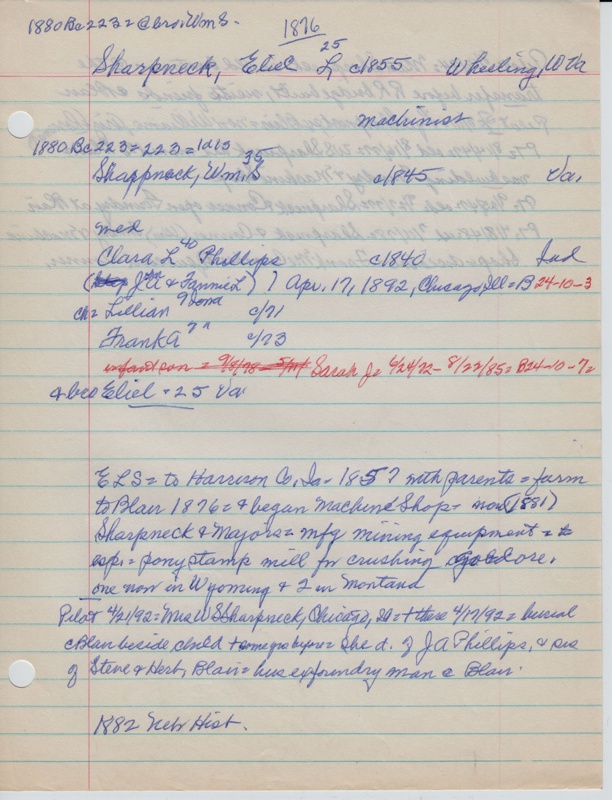 1880 Bc 223 = @ bro. Wm S.
1876
Sharpneck, Eliel L 25 c1855 Wheeling, W Va
machinist
1880 Bc 223 = 223 =
Sharpneck, Wm. S 35 c1845 Va,
med
Clara L 40 Phillips c1840 Ind
( J A & Fannie L ) ) Apr. 17, 1892, Chicago, Ill = B 24-10-3
ch = Lillian 9 Iowa c/71
Frank A 7 " c/73
infant son = 9/8/78 = Sarah J = 6/24/72 - 8/23/85 = B24-10-7 =
& bro Eliel = 25 Va
E L S = to Harrison Co, Ia - 1857 with parents = farm
to Blair 1876 = & began Machine Shop = now (1881)
Sharpneck & Majors = mfg mining equipment =
esp. = pony stamp mill for crushing gold ore,
one now in Wyoming & 2 in Montana
Pilot 4/21/92 = Mrs W S Sharpneck, Chicago, Ill = + there 4/17/92 = burial
c Blair beside child = she d. of J A Phillips, & sis
of Steve & Herb, Blair = hus ex foundry man c Blair.
1882 Neb Hist.